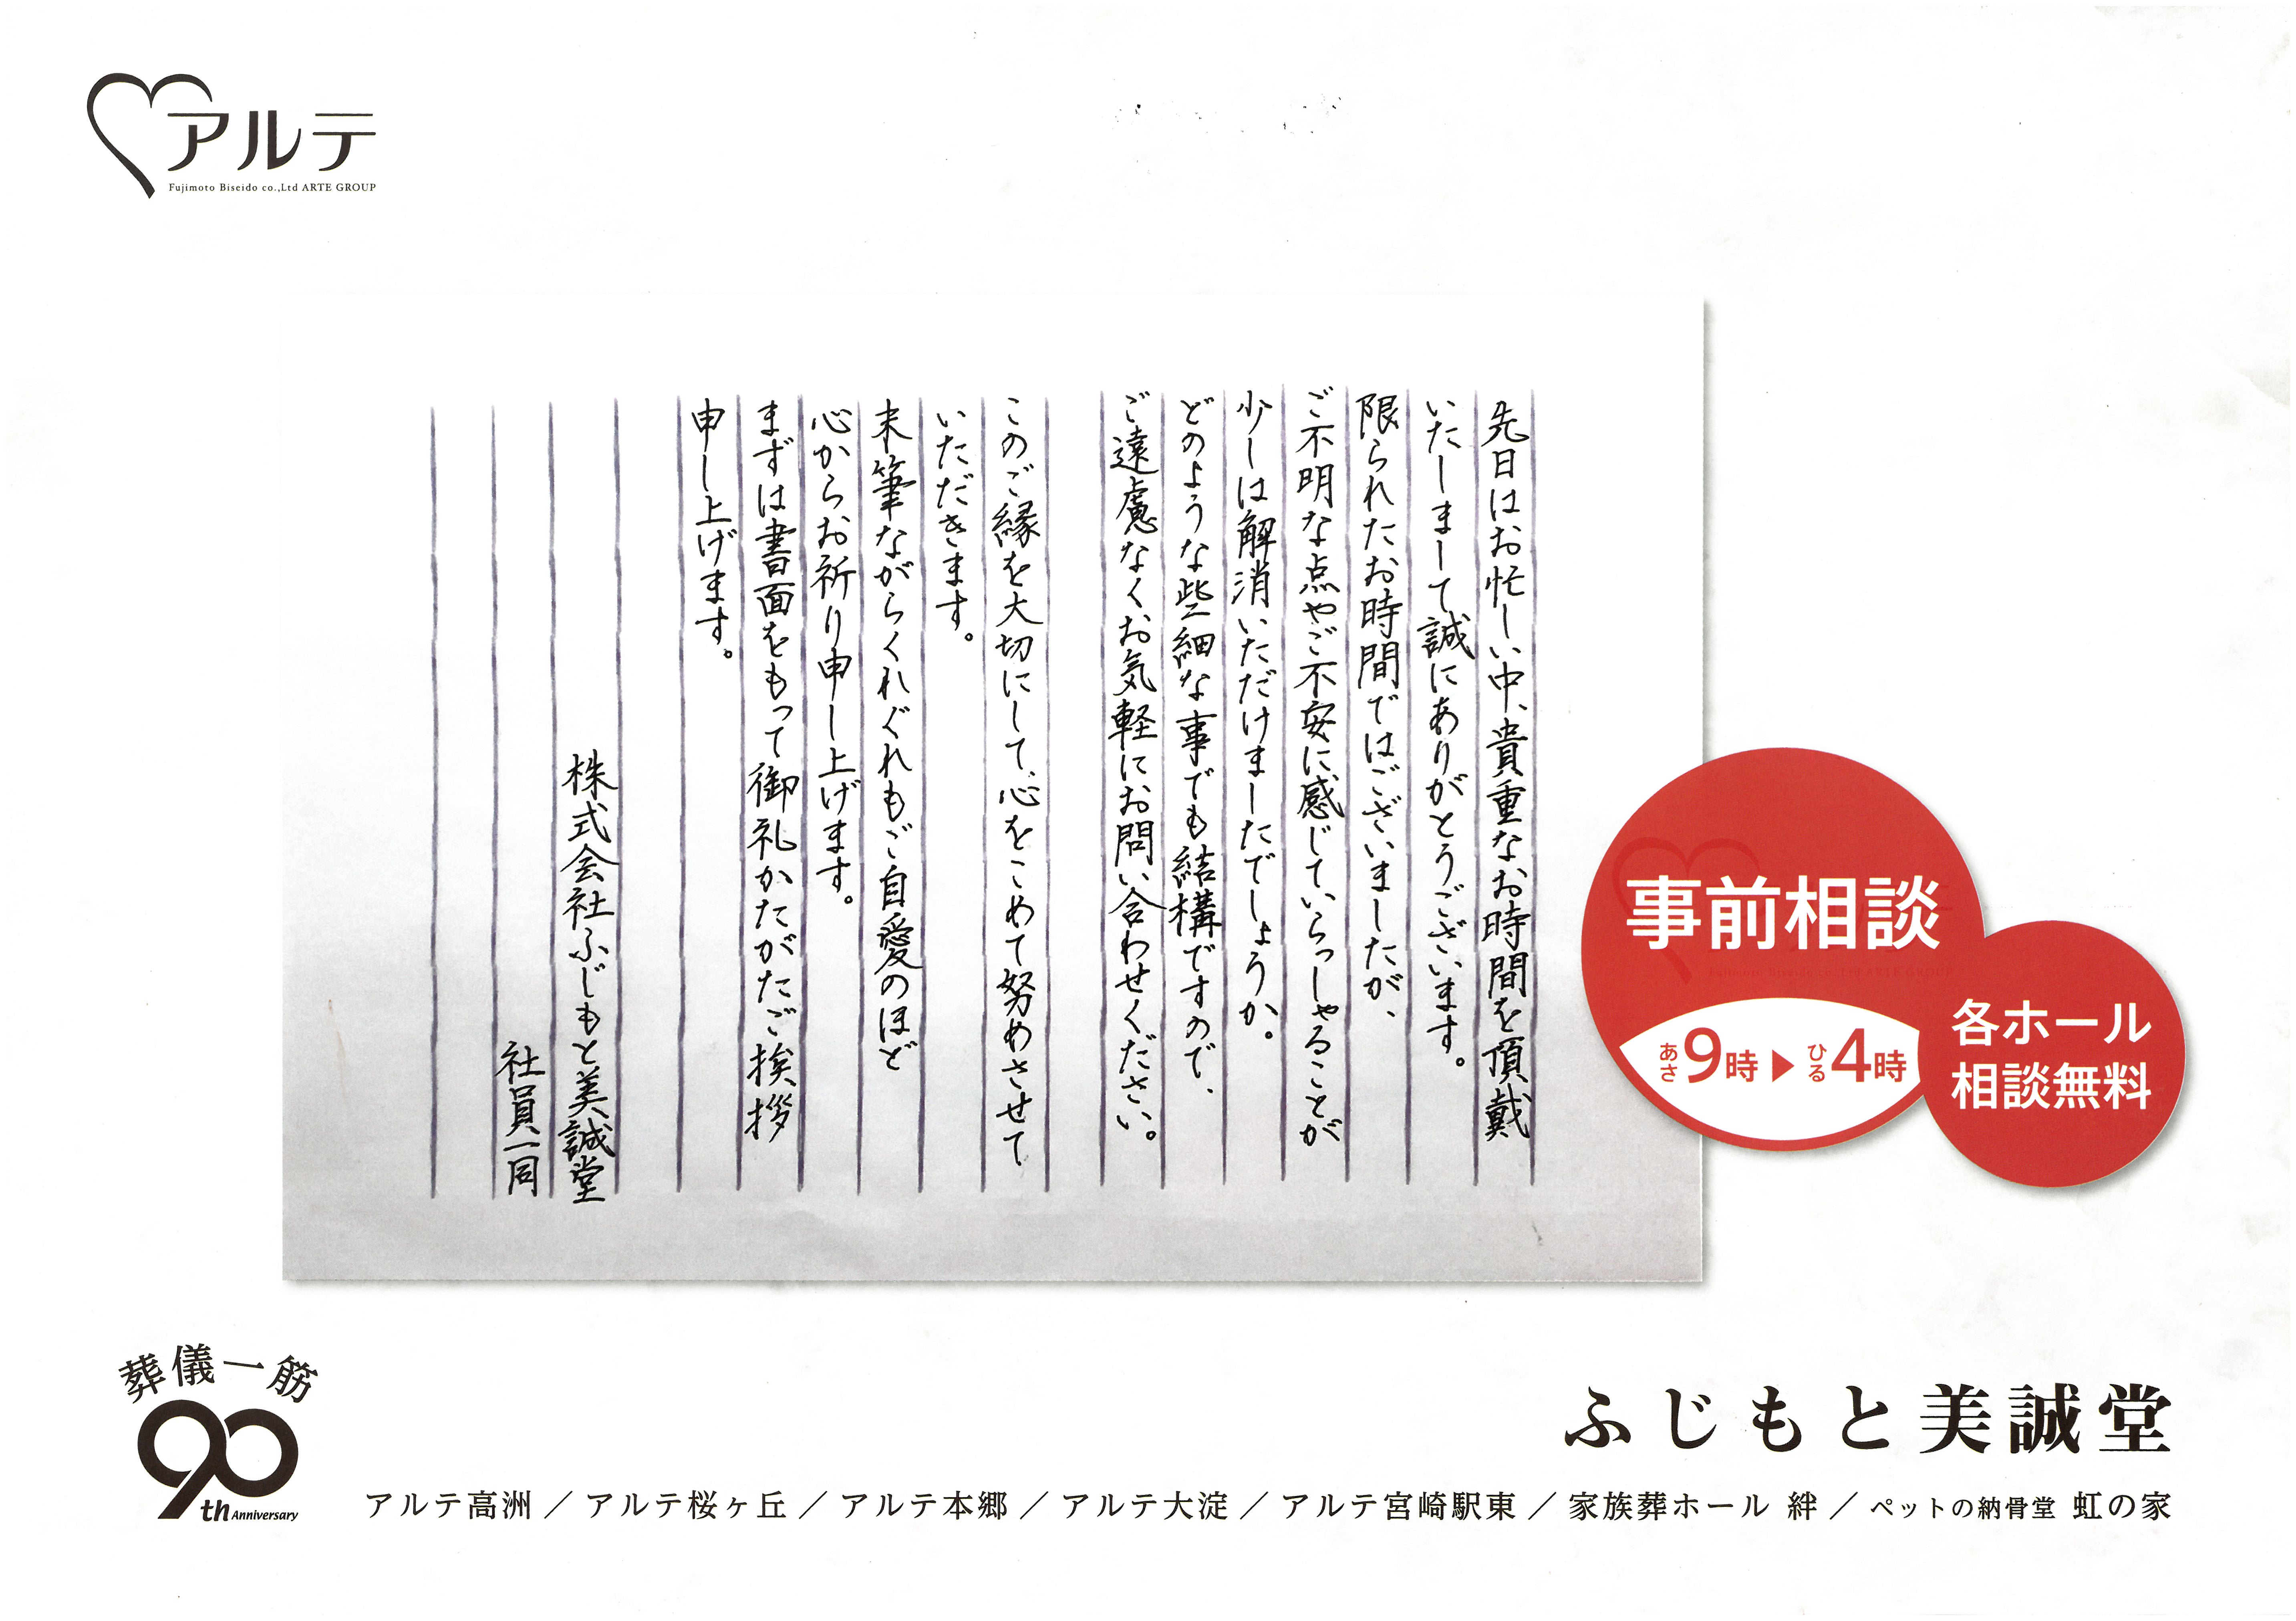 アルテ
Fujimoto Biseido co.,Ltd ARTE GROUP
先日はお忙しい中、貴重なお時間を頂戴
いたしまして誠にありがとうございます。
限られたお時間ではございましたが、
ご不明な点やご不安に感じていらっしゃることが
少しは解消いただけましたでしょうか。
どのような些細な事でも結構ですので、
ご遠慮なくお気軽にお問い合わせください。
このご縁を大切にして、心をこめて努めさせて
いただきます。
末筆ながらくれぐれもご自愛のほど
心からお祈り申し上げます。
まずは書面をもって御礼かたがたご挨拶
申し上げます。
株式会社ふじもと美誠堂
社員一同
事前相談
あさ9時▶ひる4時
各ホール
相談無料
葬儀一筋
90th Anniversary
ふじもと美誠堂
アルテ高洲／アルテ桜ヶ丘／アルテ本郷／アルテ大淀／アルテ宮崎駅東／家族葬ホール 絆／ペットの納骨堂 虹の家